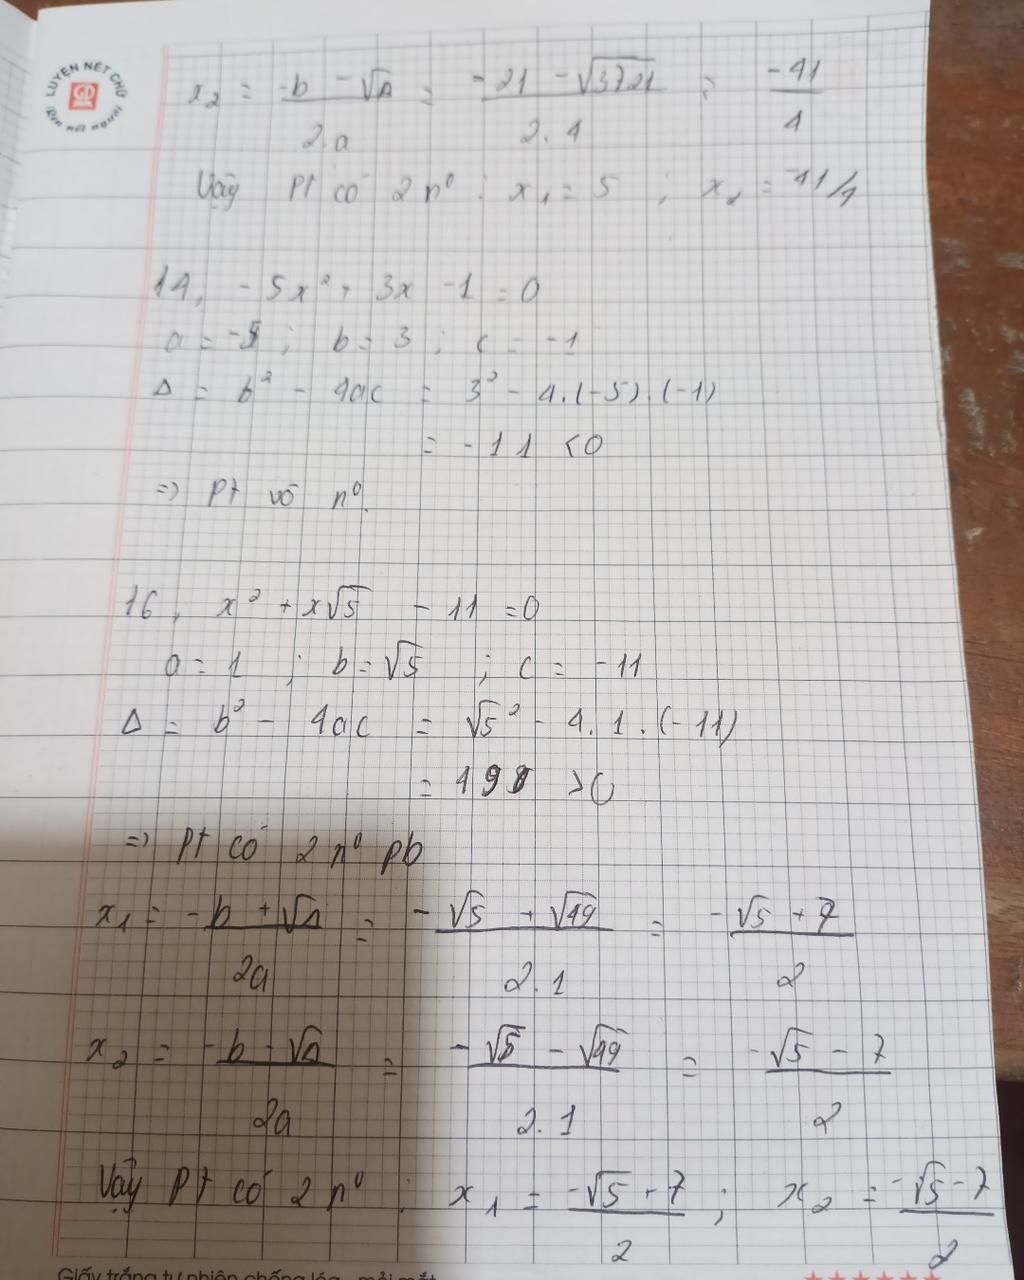 LUYỆN NÉT CHỮ
Rèn nết người
x₂ = (-b - √Δ)/(2.a) = (-21 - √3721)/(2.4) = -41/4
Vậy Pt có 2 n⁰ : x₁ = 5 ; x₂ = -41/4
14, -5x² + 3x - 1 = 0
a = -5 ; b = 3 ; c = -1
Δ = b² - 4ac = 3² - 4.(-5).(-1)
= -11 < 0
=> Pt vô n⁰.
16, x² + x√5 - 11 = 0
a = 1 ; b = √5 ; c = -11
Δ = b² - 4ac = √5² - 4.1.(-11)
= 49 > 0
=> Pt có 2 n⁰ pb
x₁ = (-b + √Δ)/(2a) = (-√5 + √49)/(2.1) = (-√5 + 7)/2
x₂ = (-b - √Δ)/(2a) = (-√5 - √49)/(2.1) = (-√5 - 7)/2
Vậy Pt có 2 n⁰ : x₁ = (-√5 + 7)/2 ; x₂ = (-√5 - 7)/2
Giấy trắng tự nhiên chống lóa, mỏi mắt